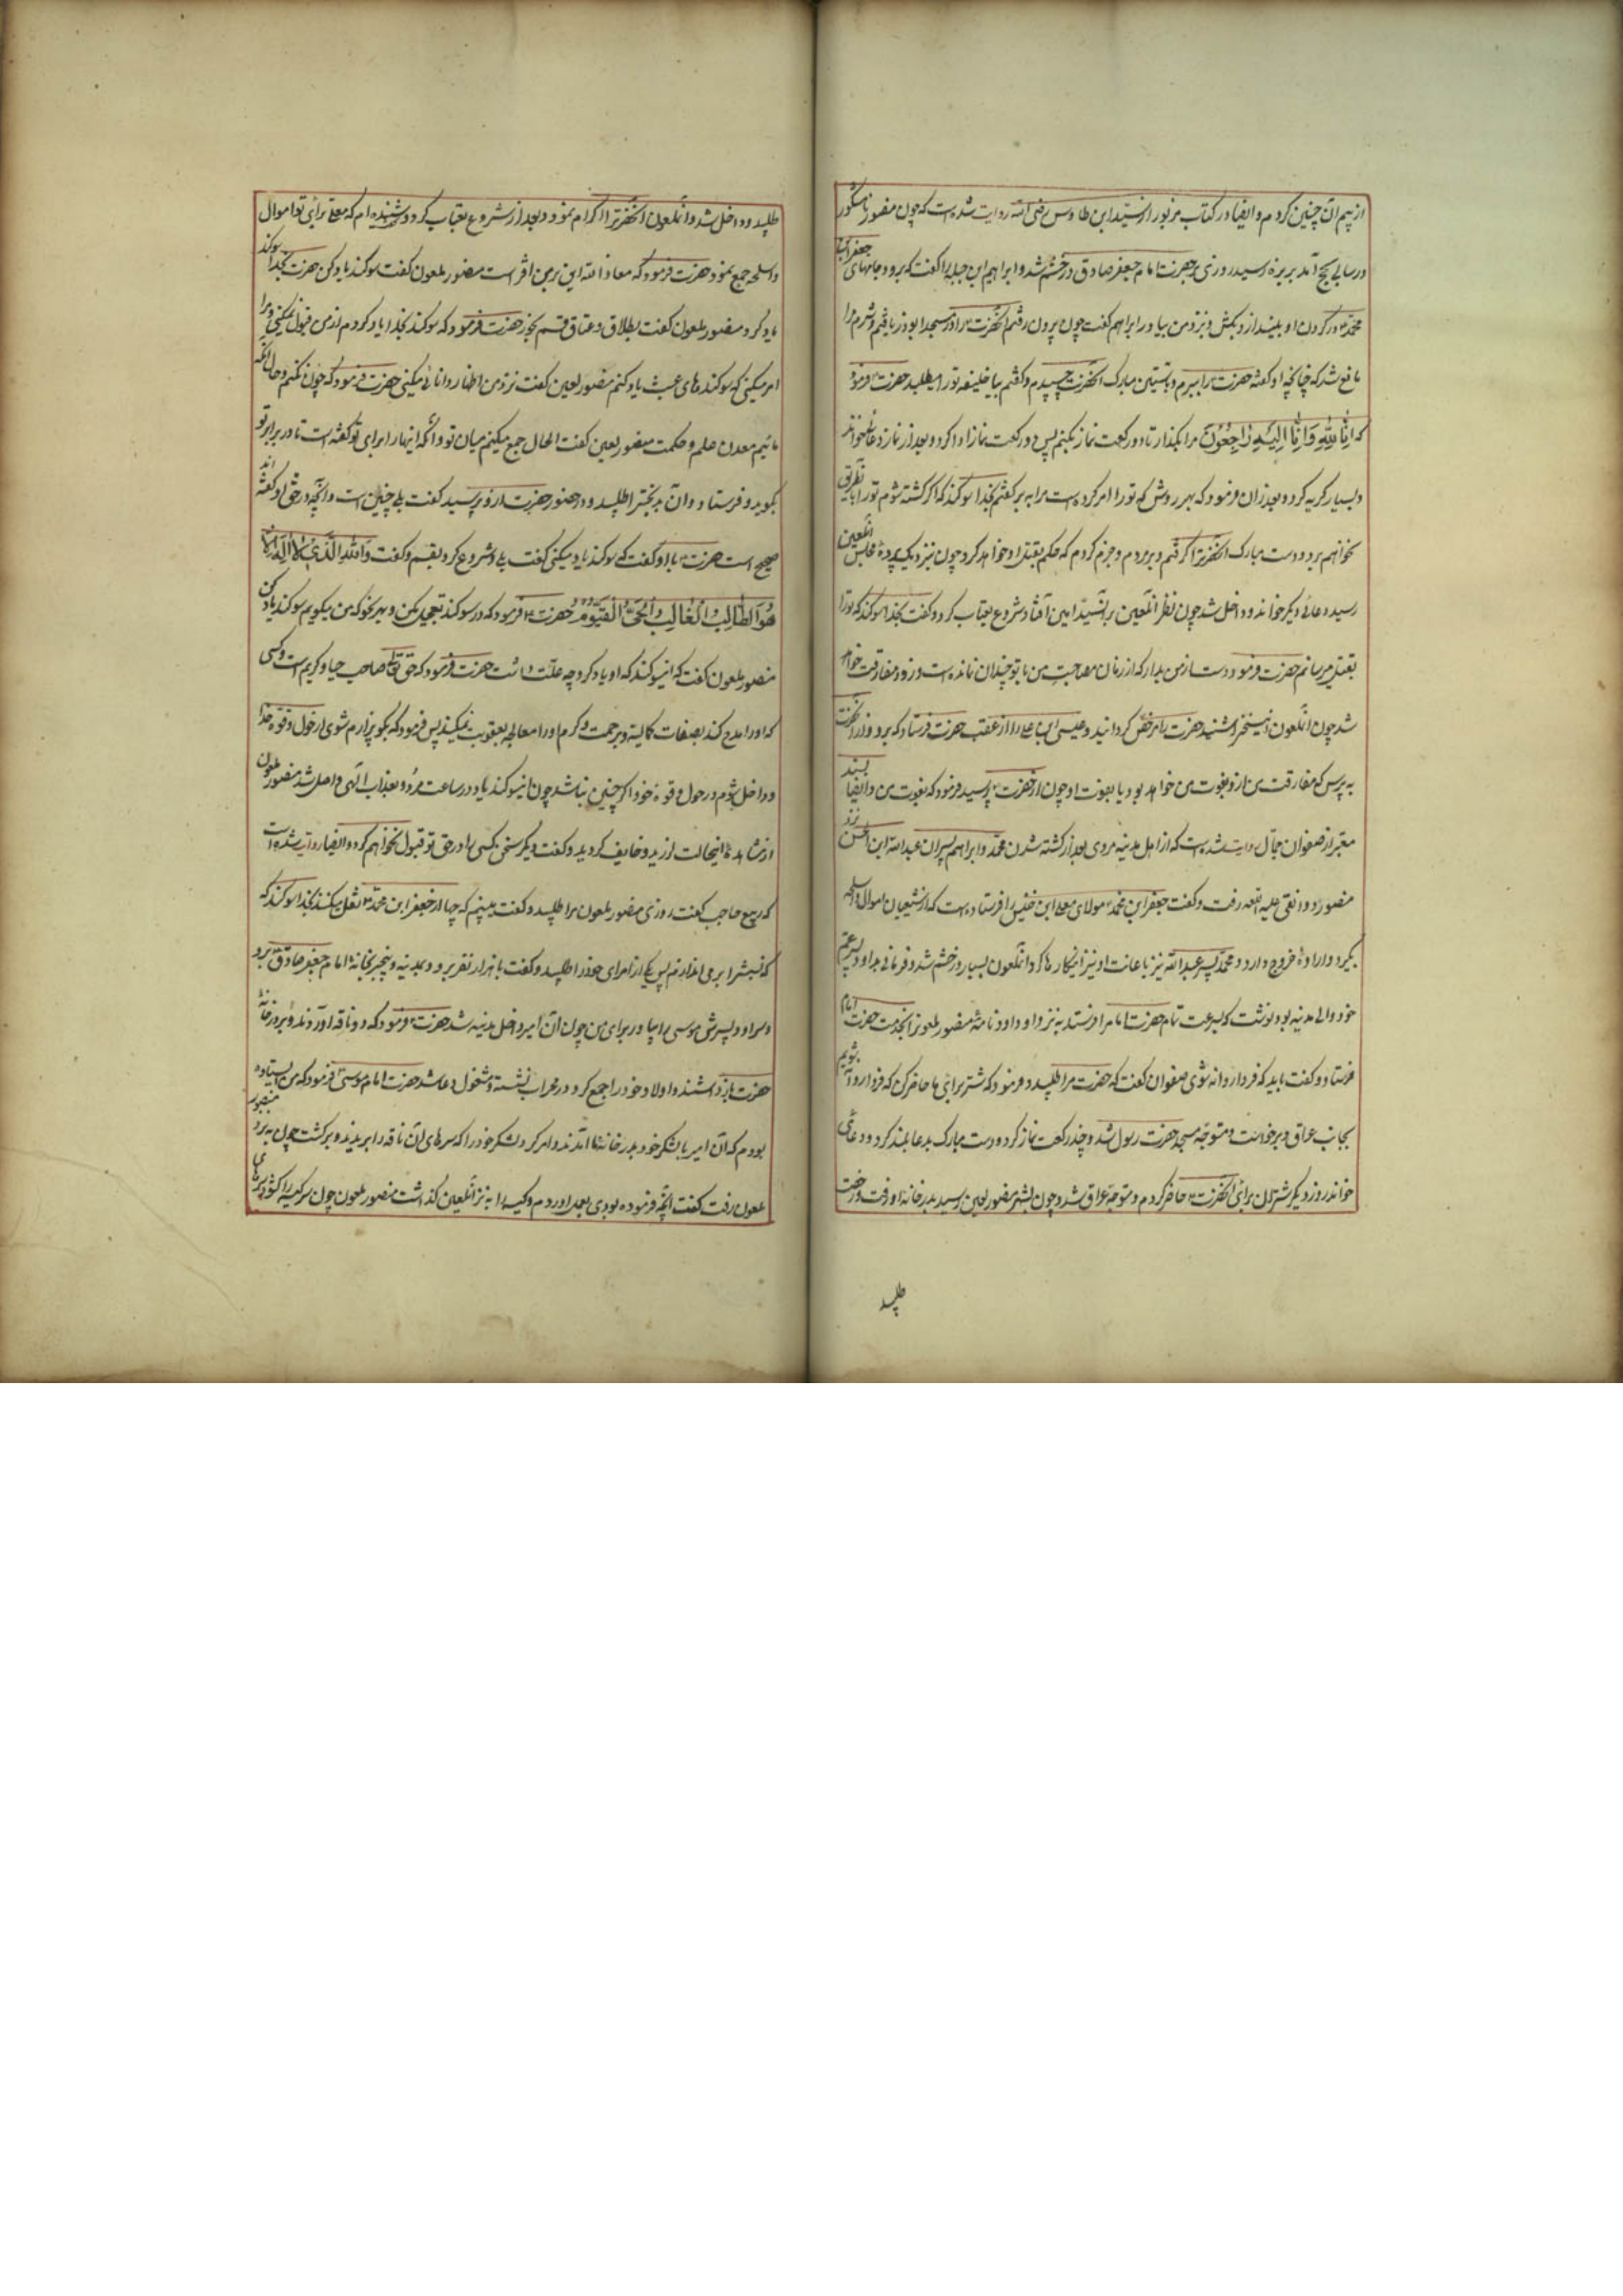 از بیم آن چنین کردم و ایضا در کتاب مزبور از سید ابن طاوس رضی الله روایت شده است که چون منصور
در سالی بحج آمد بربزه رسید روزی بر حضرت امام جعفر صادق در خشم شد و ابراهیم ابن جبله را گفت که برو و جامهای جعفر ابن
محمد در گردن او بینداز و بکش و نزد من بیاور ابراهیم گفت چون بیرون رفتم آنحضرت را در مسجد ابوذر یافتم و شرم مرا
مانع شد که چنانچه او گفته حضرت را ببرم و بآستین مبارک آنحضرت چسپیدم و گفتم بیا خلیفه تو را میطلبد حضرت فرمود
که اِنّا لِلّهِ وَاِنّا اِلَیهِ رَاجِعُونَ مرا بگذار تا دو رکعت نماز بکنم پس دو رکعت نماز ادا کرد و بعد از نماز دعائی خواند
و بسیار گریه کرد و بعد از آن فرمود که بهر روش که تو را امر کرده است مرا ببر گفتم بخدا سوگند که اگر کشته شوم تو را باین طریق
نخواهم برد و دست مبارک آنحضرترا گرفتم و بردم و جزم کردم که حکم بقتل او خواهد کرد چون نزدیک پردهٔ مجلس آنلعین
رسید دعائی دیگر خواند و داخل شد چون نظر آنلعین بر آنسید امین افتاد شروع بعتاب کرد و گفت بخدا سوگند که تو را
بقتل میرسانم حضرت فرمود دست از من بدار که از زمان مصاحبت من با تو چندان نمانده است و زود مفارقت خواهد
شد چون آنلعون این سخن را شنید حضرت را مرخص گردانید و عیسی ابن علی را از عقب حضرت فرستاد که برو و از آنحضرت
به پرس که مفارقت من از او بفوت من خواهد بود یا بفوت او چون از حضرت پرسید فرمود که بفوت من و ایضا بسند
معتبر از صفوان جمال روایت شده است که از اهل مدینه مردی بعد از کشته شدن محمد و ابراهیم پسران عبدالله ابن الحسن نزد
منصور دوانقی علیه اللعنه رفت و گفت جعفر ابن محمد مولای معلی ابن خنیس را فرستاده است که از شیعیان اموال و اسلحه
بگیرد و ارادهٔ خروج دارد و محمد پسر عبدالله نیز باعانت او نیز اینکارها کرد آنلعون بسیار در خشم شد و فرمانی بداود پسر عم
خود والی مدینه بود نوشت که بسرعت تمام حضرت امام را فرستد به نزد او داود نامهٔ منصور ملعونرا بخدمت حضرت امام
فرستاد و گفت باید که فردا روانه شوی صفوان گفت که حضرت مرا طلبید و فرمود که شتر برای ما حاضر کن که فردا روانه شویم
بجانب عراق و برخواست و متوجه مسجد حضرت رسول شد و چند رکعت نماز کرد و دست مبارک بدعا بلند کرد و دعائی
خواند روز دیگر شتران برای آنحضرت حاضر کردم و متوجه عراق شد و چون بشهر منصور لعین رسید بدر خانه او رفت و رخصت
طلبید
طلبید و داخل شد و آنلعون آنحضرترا اکرام نمود و بعد از آن شروع بعتاب کرد و شنیده ام که معلی برای تو اموال
و اسلحه جمع نمود حضرت فرمود که معاذ الله این بر من افتراست منصور ملعون گفت سوگند یاد کن حضرت بخدا سوگند
یاد کرد منصور ملعون گفت بطلاق و عتاق قسم بخور حضرت فرمود که سوگند بخدا یاد کردم از من قبول نمیکنی و مرا
امر میکنی که سوگندهای عبث یاد کنم منصور لعین گفت نزد من اظهار دانائی میکنی حضرت فرمود که چون نکنم و حال آنکه
مائیم معدن علم و حکمت منصور لعین گفت الحال جمع میکنم میان تو و آنکه اینها را برای تو گفته است تا در برابر تو
بگوید و فرستاد و آن بدبختر اطلبید و در حضور حضرت از او پرسید گفت بلی چنین است و آنچه در حق او گفته اند
صحیح است حضرت با او گفت که سوگند یاد میکنی گفت بلی و شروع کرد بقسم و گفت وَاللهِ الَّذِی لا اِلَهَ اِلّا
هُوَ الطّالِبُ الغَالِبُ الحَیُّ القَیُّومُ حضرت فرمود که در سوگند تعجیل مکن و بهر نحو که من بگویم سوگند یاد کن
منصور ملعون گفت که این سوگند که او یاد کرد چه علت داشت حضرت فرمود که حق تعالی صاحب حیا و کریم است و کسی
که او را مدح کند بصفات کمالیه و برحمت و کرم او را معاجله بعقوبت نمیکند پس فرمود که بگو بیزارم شوی از حول و قوهٔ خدا
و داخل شوم در حول و قوهٔ خود اگر چنین نباشد چون این سوگند یاد در ساعت مرد و بعذاب الهی واصل شد منصور ملعون
از مشاهدهٔ اینحالت لرزید و خایف گردید و گفت دیگر سخن کسی را در حق تو قبول نخواهم کرد و ایضا روایت شده است
که ربیع حاجب گفت روزی منصور ملعون مرا طلبید و گفت میبینم که چها از جعفر ابن محمد نقل میکنند بخدا سوگند که
که نسلش را بر می اندازم پس یکی از امرای خود را طلبید و گفت با هزار نفر برو و بمدینه و بیخبر بخانهٔ امام جعفر صادق برو
و سر او و پسرش موسی را بیاور برای من چون آن امیر داخل مدینه شد حضرت فرمود که دو ناقه آوردند و بر در خانهٔ
حضرت بازداشتند و اولاد خود را جمع کرد و در محراب نشسته و مشغول دعا شد حضرت امام موسی فرمود که من ایستاده
بودم که آن امیر با لشکر خود بدر خانه ما آمدند و امر کرد لشکر خود را که سرهای آن ناقه را بریدند و برگشت چون به نزد منصور
ملعون رفت گفت آنچه فرموده بودی بعمل آوردم و کیسه را به نزد آنلعین گذاشت منصور ملعون چون سر کیسه را گشود سرهای